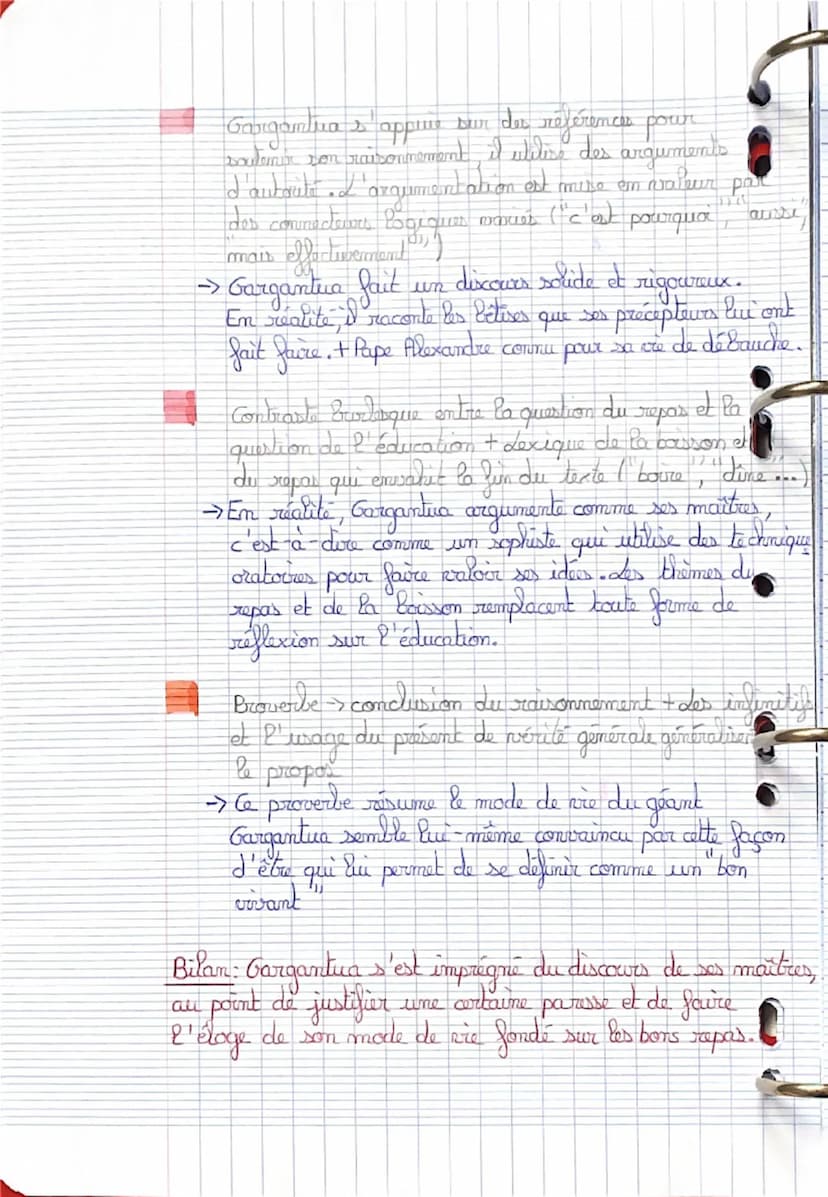 Gargantua s'appuie sur des références pour
soutenir son raisonnement, il utilise des arguments
d'autorité. L'argumentation est mise en valeur par
des connecteurs logiques variés ("c'est pourquoi", "aussi",
"mais effectivement")
→ Gargantua fait un discours solide et rigoureux.
En réalité, il raconte les bêtises que ses précepteurs lui ont
fait faire. + Pape Alexandre connu pour sa vie de débauche.
Contraste burlesque entre la question du repas et la
question de l'éducation + Lexique de la boisson et
du repas qui envahit la fin du texte ("boire", "dîne"...)
→ En réalité, Gargantua argumente comme ses maîtres,
c'est-à-dire comme un sophiste qui utilise des technique
oratoires pour faire valoir ses idées. Les thèmes du
repas et de la boisson remplacent toute forme de
réflexion sur l'éducation.
Proverbe → conclusion du raisonnement + des infinitifs
et l'usage du présent de vérité générale généralisent
le propos
→ Ce proverbe résume le mode de vie du géant
Gargantua semble lui-même convaincu par cette façon
d'être qui lui permet de se définir comme un "bon
vivant"
Bilan: Gargantua s'est imprégné du discours de ses maîtres,
au point de justifier une certaine paresse et de faire
l'éloge de son mode de vie fondé sur les bons repas.